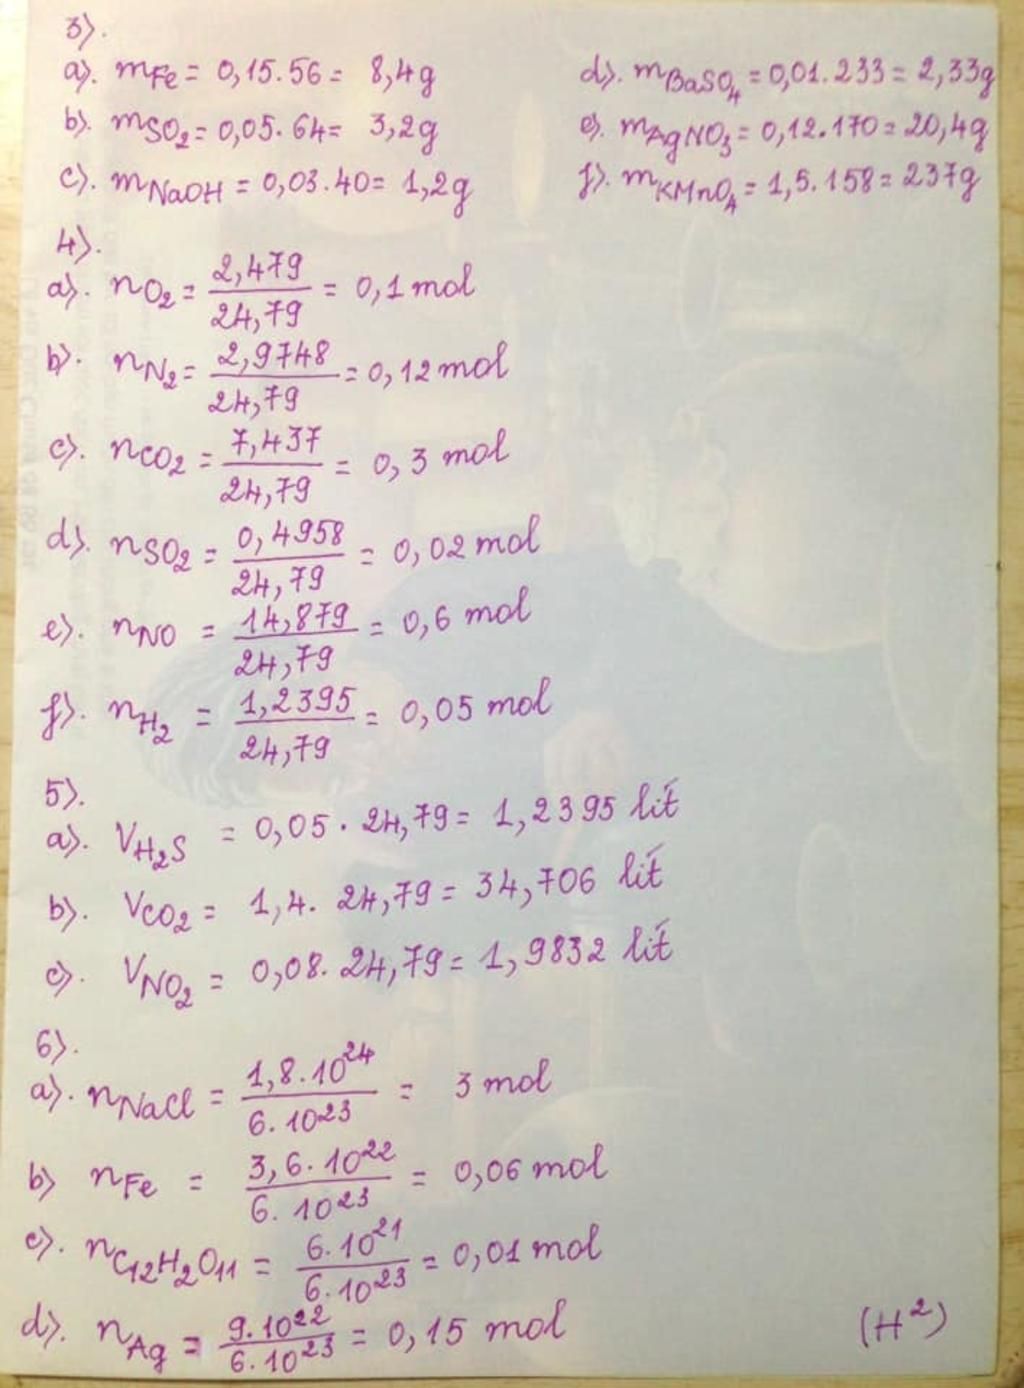 3).
a). mFe = 0,15.56 = 8,4g
d). mBaSO4 = 0,01.233 = 2,33g
b). mSO2 = 0,05.64 = 3,2g
e). mAgNO3 = 0,12.170 = 20,4g
c). mNaOH = 0,03.40 = 1,2g
f). mKMnO4 = 1,5.158 = 237g
4).
a). nO2 = 2,479/24,79 = 0,1 mol
b). nN2 = 2,9748/24,79 = 0,12 mol
c). nCO2 = 7,437/24,79 = 0,3 mol
d). nSO2 = 0,4958/24,79 = 0,02 mol
e). nNO = 14,879/24,79 = 0,6 mol
f). nH2 = 1,2395/24,79 = 0,05 mol
5).
a). VH2S = 0,05 . 24,79 = 1,2395 lít
b). VCO2 = 1,4. 24,79 = 34,706 lít
c). VNO2 = 0,08. 24,79 = 1,9832 lít
6).
a). nNaCl = 1,8.10^24/6.10^23 = 3 mol
b) nFe = 3,6.10^22/6.10^23 = 0,06 mol
c). nC12H2O11 = 6.10^21/6.10^23 = 0,01 mol
d). nAg = 9.10^22/6.10^23 = 0,15 mol
(H²)